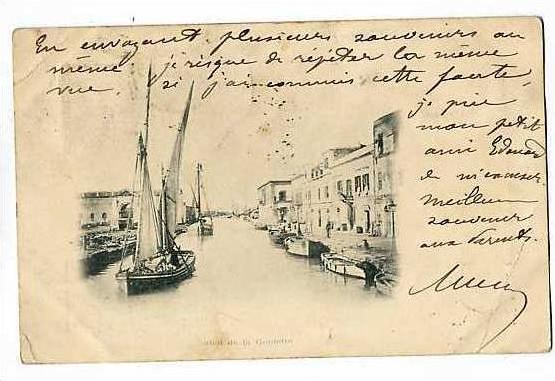 En envoyant plusieurs souvenirs au
même, je risque de répéter la même
vue. Si j'ai commis cette faute,
je prie
mon petit
ami Edouard
de m'excuser
meilleur
souvenir
aux Parents.
de la Goulette